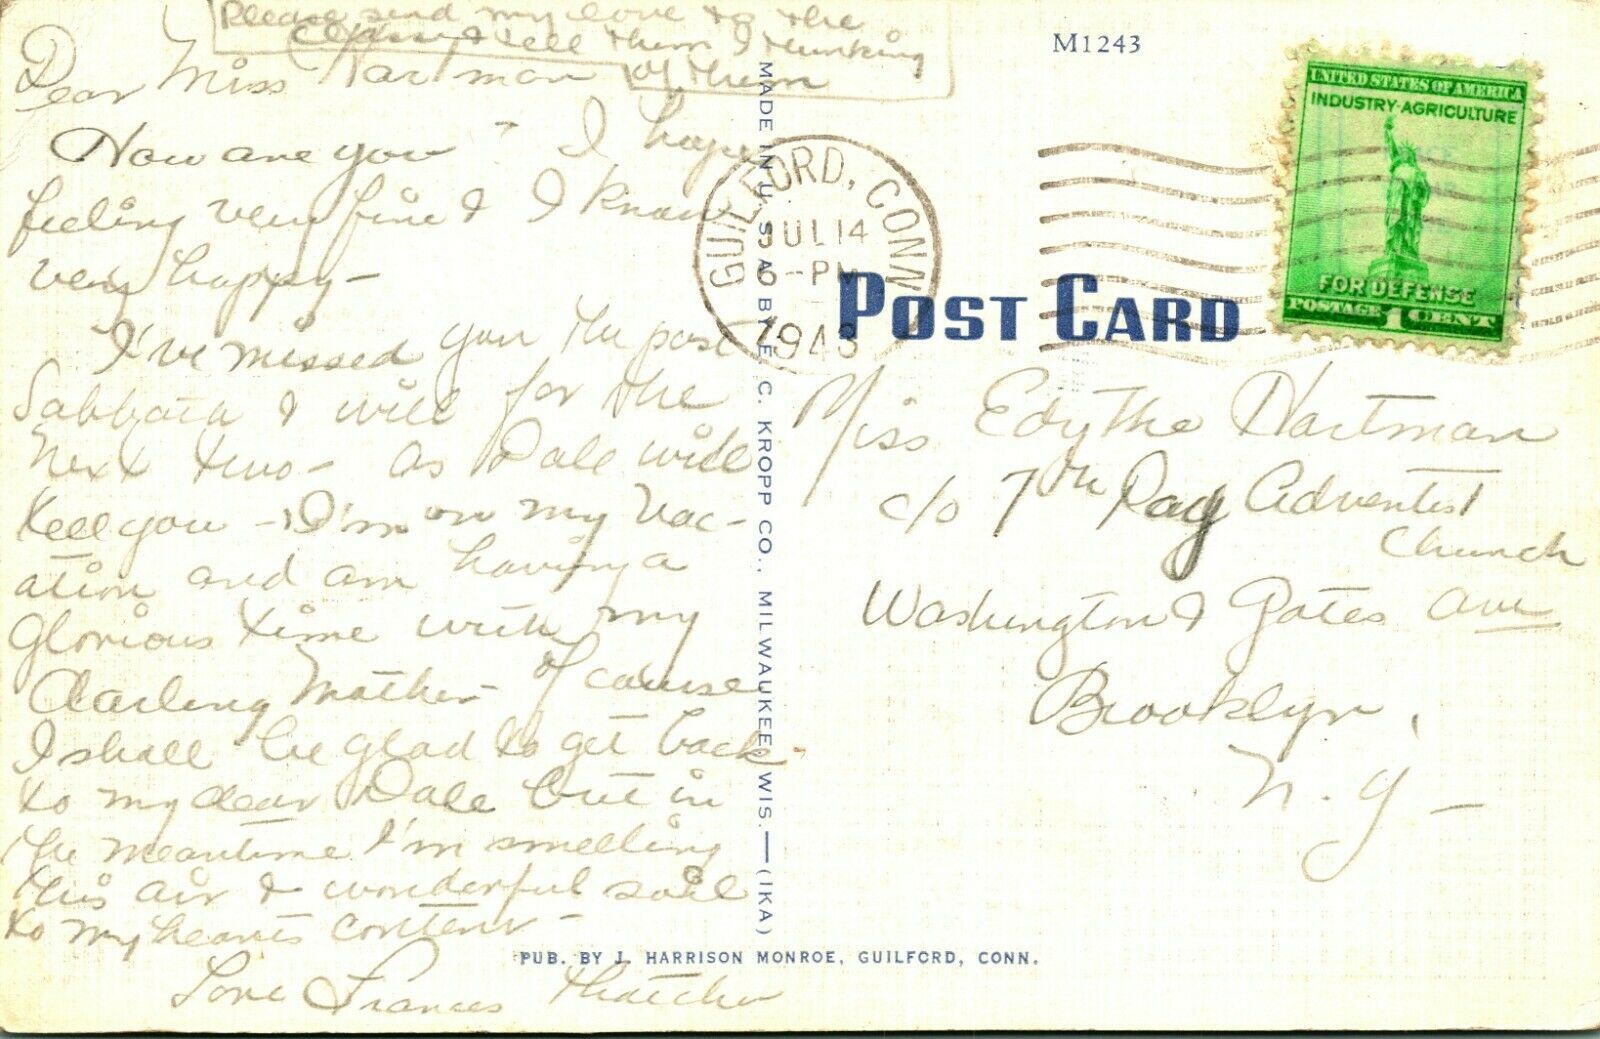 Please send my love to the
Class & tell them I thinking
of them
Dear Miss Hartman
How are you? I hope
feeling very fine & I know
very happy -
I've missed you the past
Sabbath & will for the
next two - as Dale will
tell you - I'm on my vac-
ation and am having a
glorious time with my
darling Mother - Of course
I shall be glad to get back
to my dear Dale but in
the meantime I'm smelling
this air & wonderful soil
to my hearts content -
Love Frances Thatcher
MADE IN U.S.A. BY E. C. KROPP CO., MILWAUKEE, WIS.—(IKA)
M1243
UNITED STATES OF AMERICA
INDUSTRY-AGRICULTURE
FOR DEFENSE
POSTAGE 1 CENT
GUILFORD, CONN.
JUL 14
6-PM
1943
POST CARD
Miss Edythe Hartman
c/o 7th Day Adventist
Church
Washington & Gates Ave
Brooklyn,
N.Y -
PUB. BY J. HARRISON MONROE, GUILFORD, CONN.